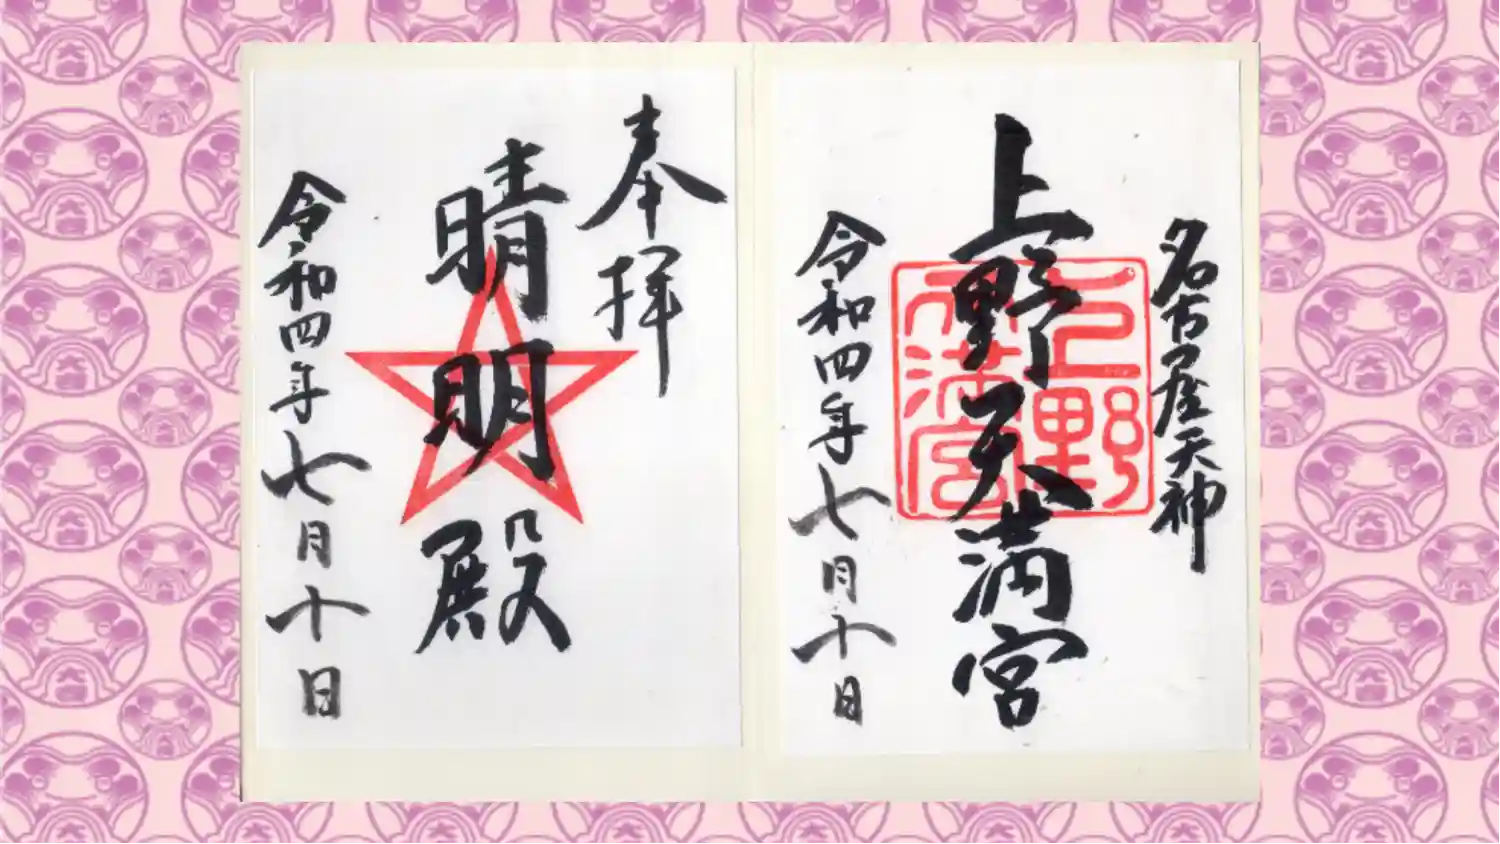 名古屋天神
上野天満宮
上野
天満宮
令和四年七月十日
奉拝
晴明殿
令和四年七月十日